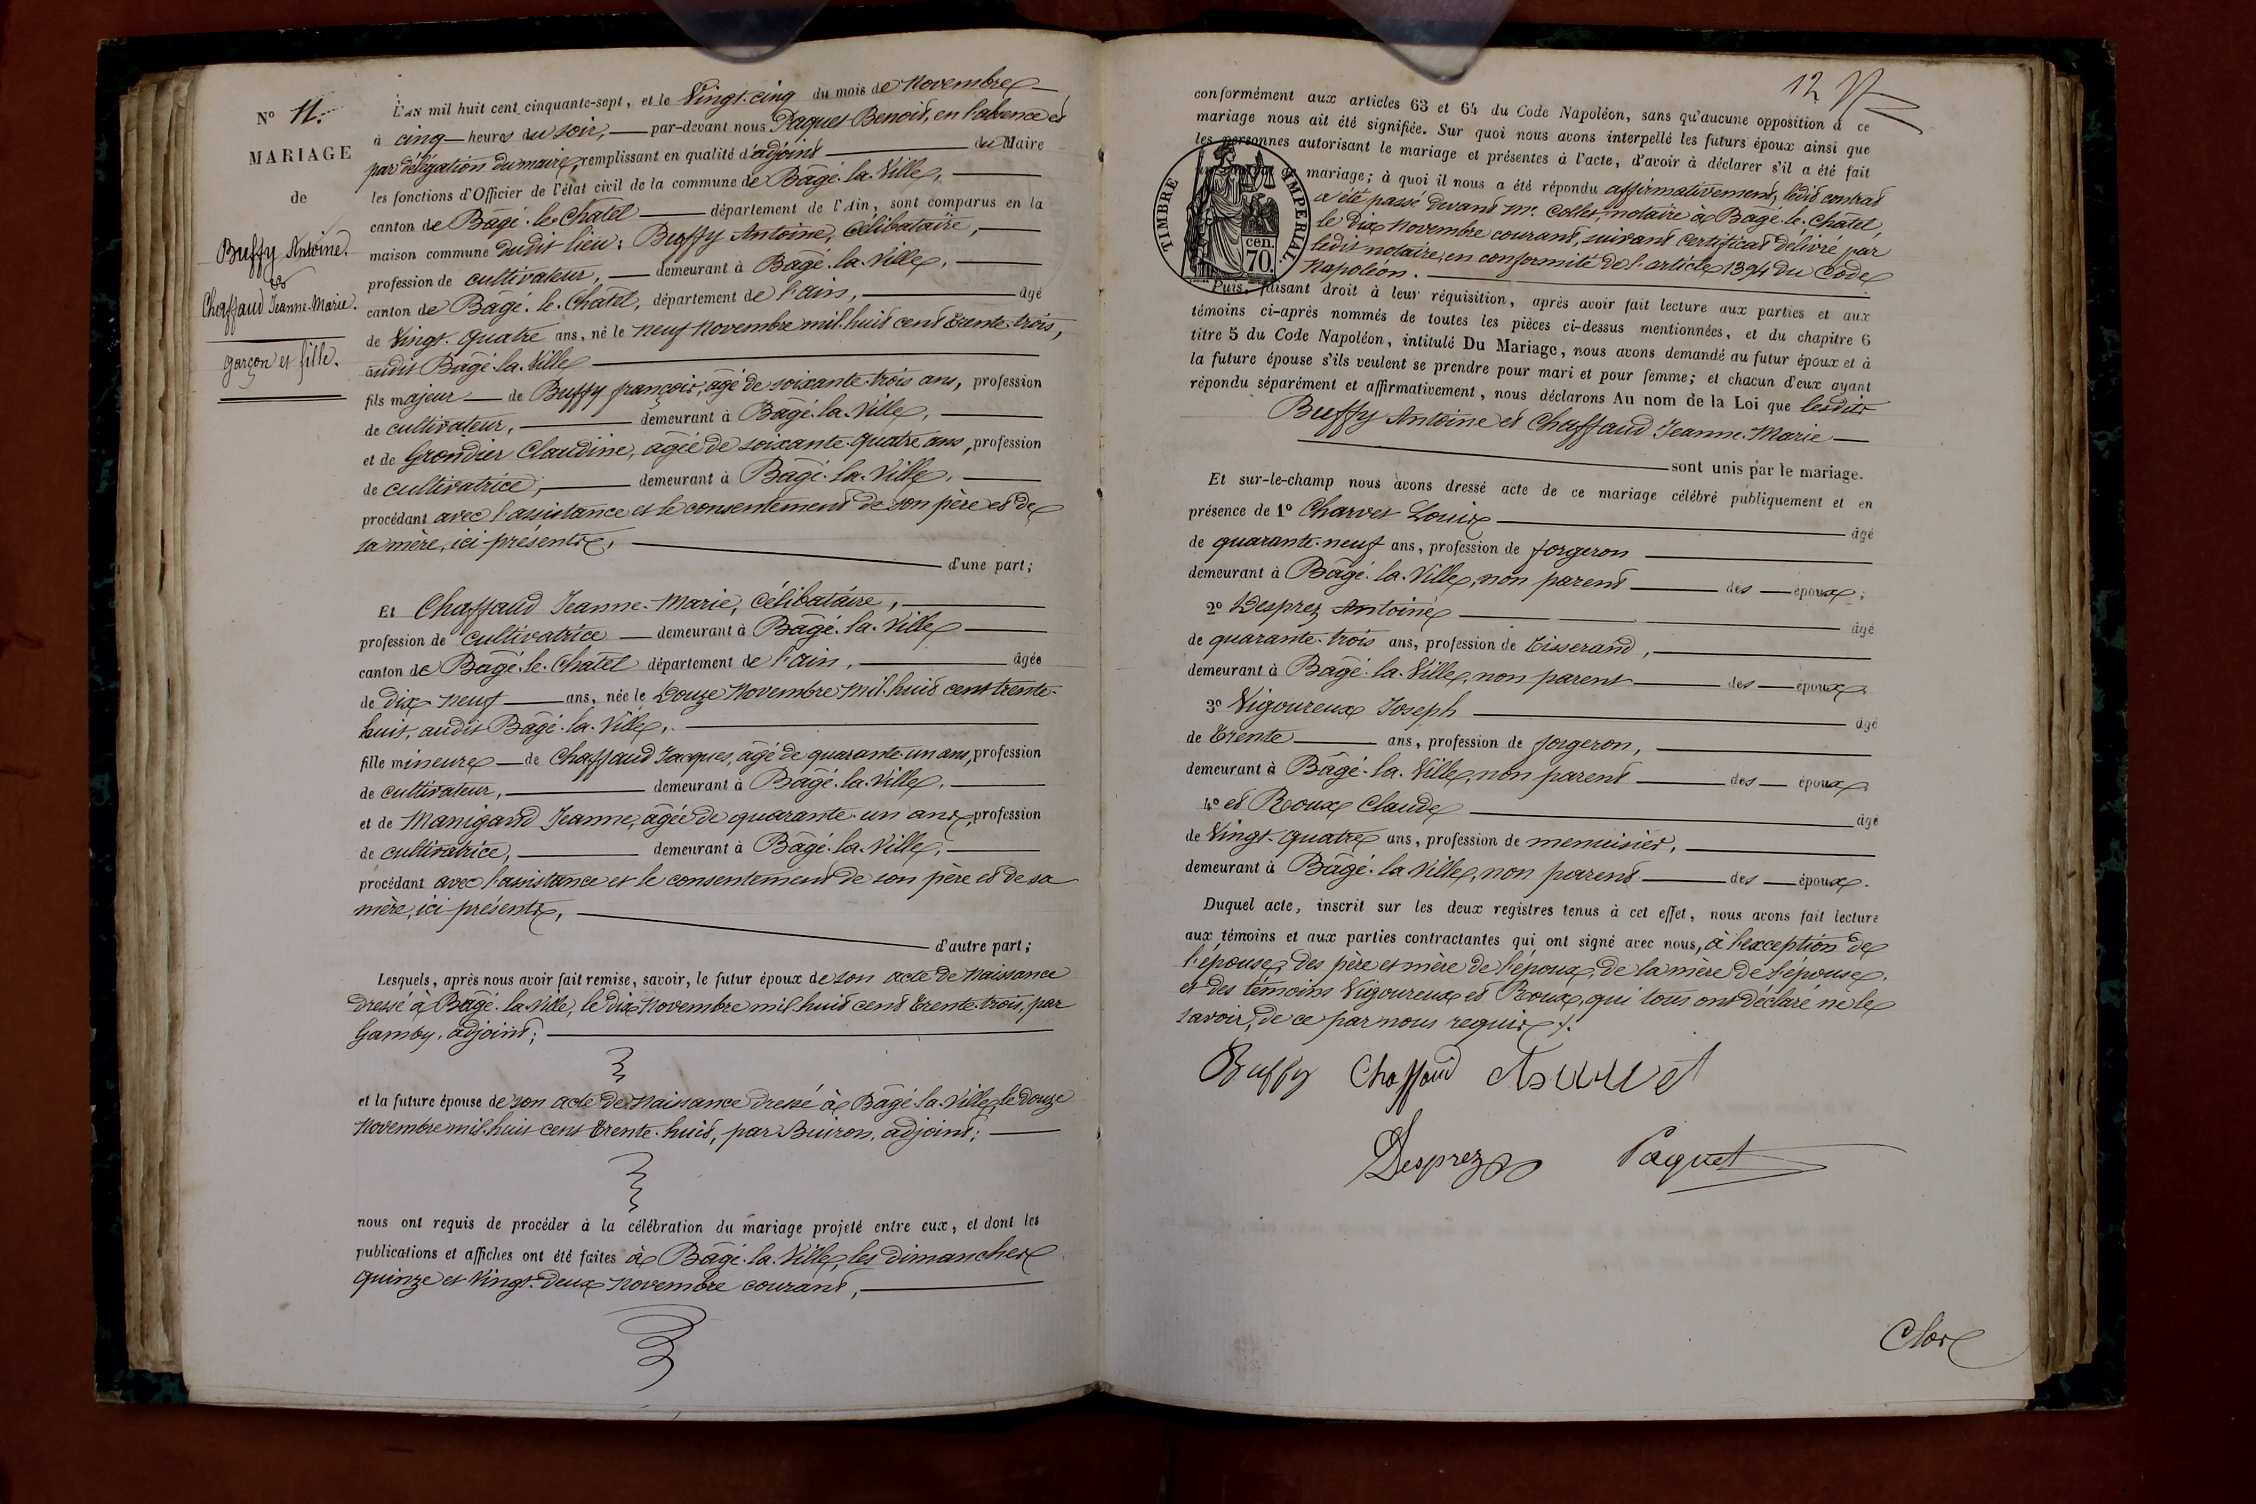 N° 11.
MARIAGE
de
Buffy Antoine.
et
Chaffaud Jeanne-Marie.
garçon et fille.
L'an mil huit cent cinquante-sept, et le Vingt-cinq du mois de Novembre
à cinq heures du soir, par-devant nous Paquet Benoit, en l'absence et
par délégation du maire, remplissant en qualité d'adjoint du Maire
les fonctions d'Officier de l'état civil de la commune de Bâgé-la-Ville,
canton de Bagé-le-Chatel département de l'Ain, sont comparus en la
maison commune dudit lieu : Buffy Antoine, célibataire,
profession de cultivateur, demeurant à Bâgé-la-Ville,
canton de Bagé-le-Chatel, département de l'ain, âgé
de Vingt-quatre ans, né le neuf Novembre mil huit cent trente-trois,
audit Bâgé-la-Ville
fils majeur de Buffy françois, âgé de soixante-trois ans, profession
de cultivateur, demeurant à Bâgé-la-Ville,
et de Grondier Claudine, agée de soixante-quatre ans, profession
de cultivatrice, demeurant à Bâgé-la-Ville,
procédant avec l'assistance et le consentement de son père et de
sa mère, ici présents,
d'une part;
Et Chaffaud Jeanne-Marie, célibataire,
profession de cultivatrice demeurant à Bâgé-la-Ville
canton de Bagé-le-Chatel département de l'ain, âgée
de Dix-neuf ans, née le Douze Novembre mil huit cent trente-
huit, audit Bâgé-la-Ville,
fille mineure de Chaffaud Jacques, âgé de quarante-un ans, profession
de cultivateur, demeurant à Bâgé-la-Ville,
et de Manigand Jeanne, agée de quarante-un ans, profession
de cultivatrice, demeurant à Bâgé-la-Ville,
procédant avec l'assistance et le consentement de son père et de sa
mère, ici présents,
d'autre part;
Lesquels, après nous avoir fait remise, savoir, le futur époux de son acte de Naissance
dressé à Bâgé-la-Ville, le dix Novembre mil huit cent trente-trois, par
Gamby, adjoint;
et la future épouse de son acte de Naissance dressé à Bâgé-la-Ville, le douze
Novembre mil huit cent trente-huit, par Buiron, adjoint;
nous ont requis de procéder à la célébration du mariage projeté entre eux, et dont les
publications et affiches ont été faites à Bâgé-la-Ville, les dimanches
quinze et Vingt-deux Novembre courant,
12
conformément aux articles 63 et 64 du Code Napoléon, sans qu'aucune opposition à ce
mariage nous ait été signifiée. Sur quoi nous avons interpellé les futurs époux ainsi que
les personnes autorisant le mariage et présentes à l'acte, d'avoir à déclarer s'il a été fait
mariage; à quoi il nous a été répondu affirmativement, ledit contrat
a été passé devant Mr. Collet, notaire à Bâgé-le-Chatel,
le Dix Novembre courant, suivant certificat délivré par
ledit notaire, en conformité de l'article 1394 du Code
Napoléon.
TIMBRE IMPERIAL.
cen.
70.
Puis, faisant droit à leur réquisition, après avoir fait lecture aux parties et aux
témoins ci-après nommés de toutes les pièces ci-dessus mentionnées, et du chapitre 6
titre 5 du Code Napoléon, intitulé Du Mariage, nous avons demandé au futur époux et à
la future épouse s'ils veulent se prendre pour mari et pour femme; et chacun d'eux ayant
répondu séparément et affirmativement, nous déclarons Au nom de la Loi que lesdits
Buffy Antoine et Chaffaud Jeanne-Marie
sont unis par le mariage.
Et sur-le-champ nous avons dressé acte de ce mariage célébré publiquement et en
présence de 1° Charvet Louis âgé
de quarante-neuf ans, profession de forgeron
demeurant à Bâgé-la-Ville, non parent des époux;
2° Desprez Antoine âgé
de quarante-trois ans, profession de tisserand,
demeurant à Bâgé-la-Ville, non parent des époux,
3° Vigoureux Joseph âgé
de trente ans, profession de forgeron,
demeurant à Bâgé-la-Ville, non parent des époux,
4° et Roux Claude âgé
de Vingt-quatre ans, profession de menuisier,
demeurant à Bâgé-la-Ville, non parent des époux.
Duquel acte, inscrit sur les deux registres tenus à cet effet, nous avons fait lecture
aux témoins et aux parties contractantes qui ont signé avec nous, à l'exception de
l'épouse, des père et mère de l'époux, de la mère de l'épouse,
et des témoins Vigoureux et Roux, qui tous ont déclaré ne le
savoir, de ce par nous requis.
Buffy Chaffaud Charvet
Desprez Paquet
Clos